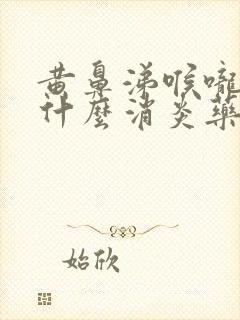 黄鼻涕喉嚨
什麼消炎藥
始欣